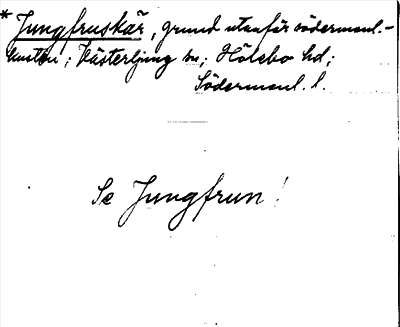 * Jungfruskär, grund utanför södermanl.-
kusten; Västerljung sn; Hölebo hd;
Södermanl. l.
Se Jungfrun!